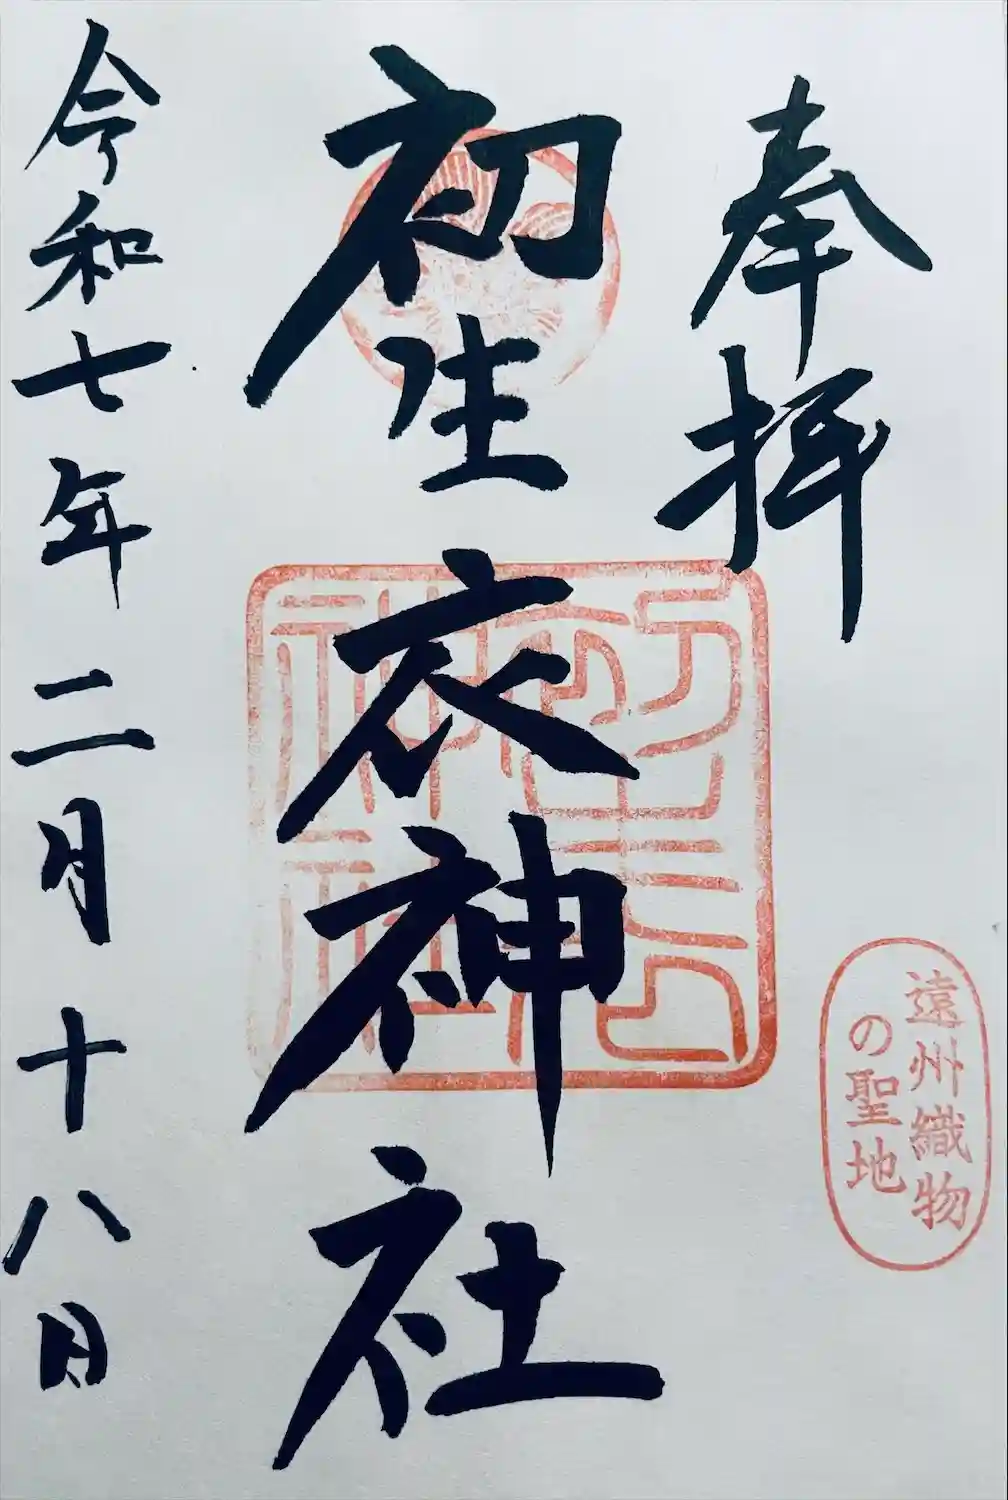 奉拝
遠州織物
の聖地
初生衣神社
初生衣
神社
令和七年二月十八日